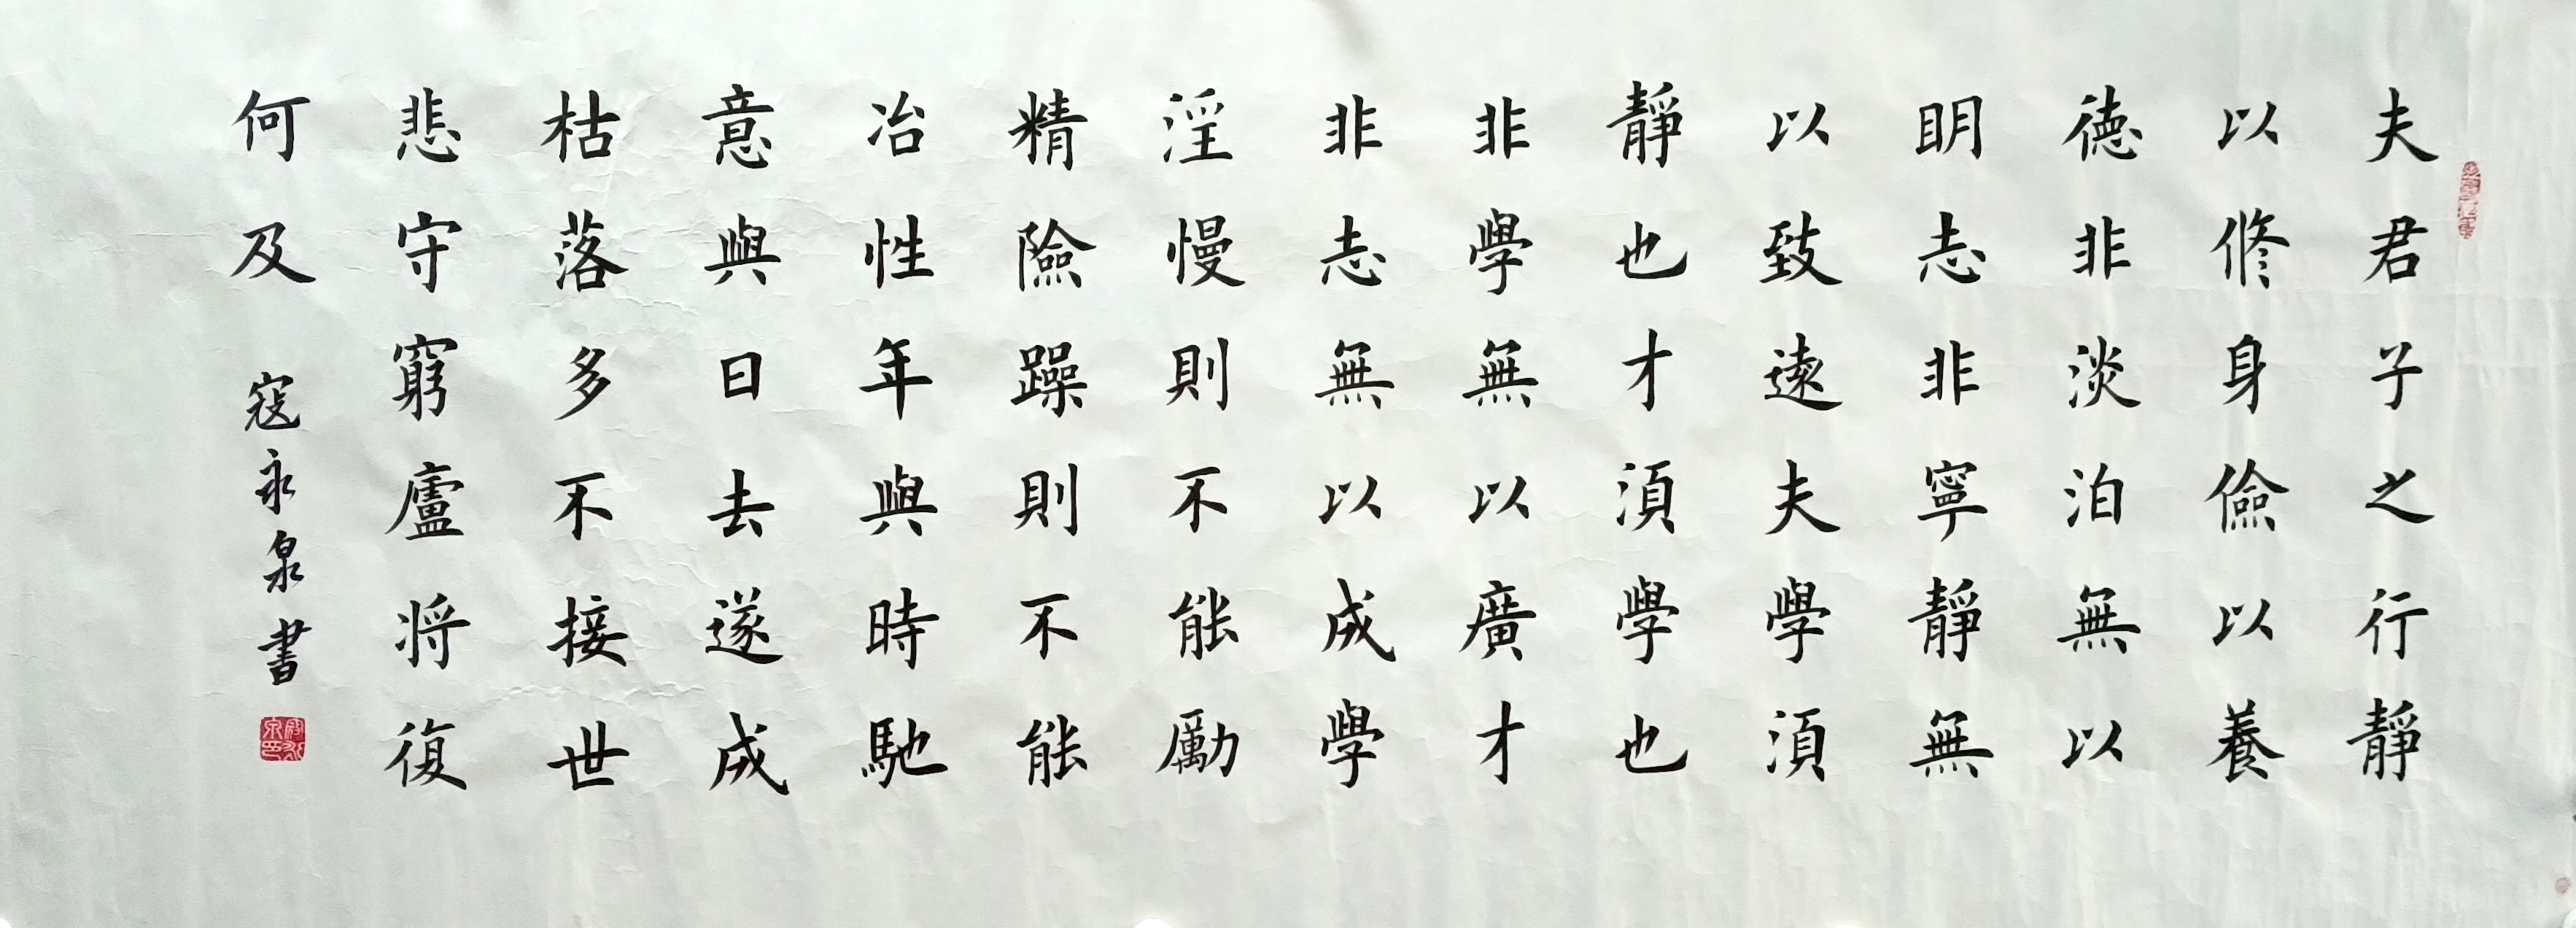 夫君子之行靜
以修身儉以養
德非淡泊無以
明志非寧靜無
以致遠夫學須
靜也才須學也
非學無以廣才
非志無以成學
淫慢則不能勵
精險躁則不能
冶性年與時馳
意與日去遂成
枯落多不接世
悲守窮廬将復
何及
寇永泉書